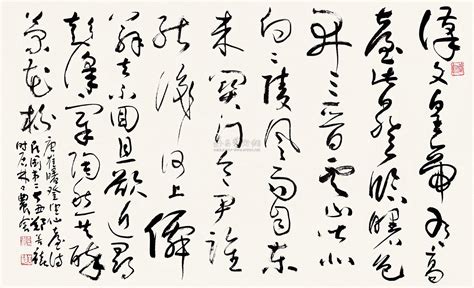 漢文皇帝有高
臺此日登臨曙色
開三晉雲山皆北
向二陵風雨自東
來關門令尹誰
能識河上僊
翁去不回且欲近尋
彭澤宰陶然共醉
菊花杯
唐崔曙登望仙臺詩